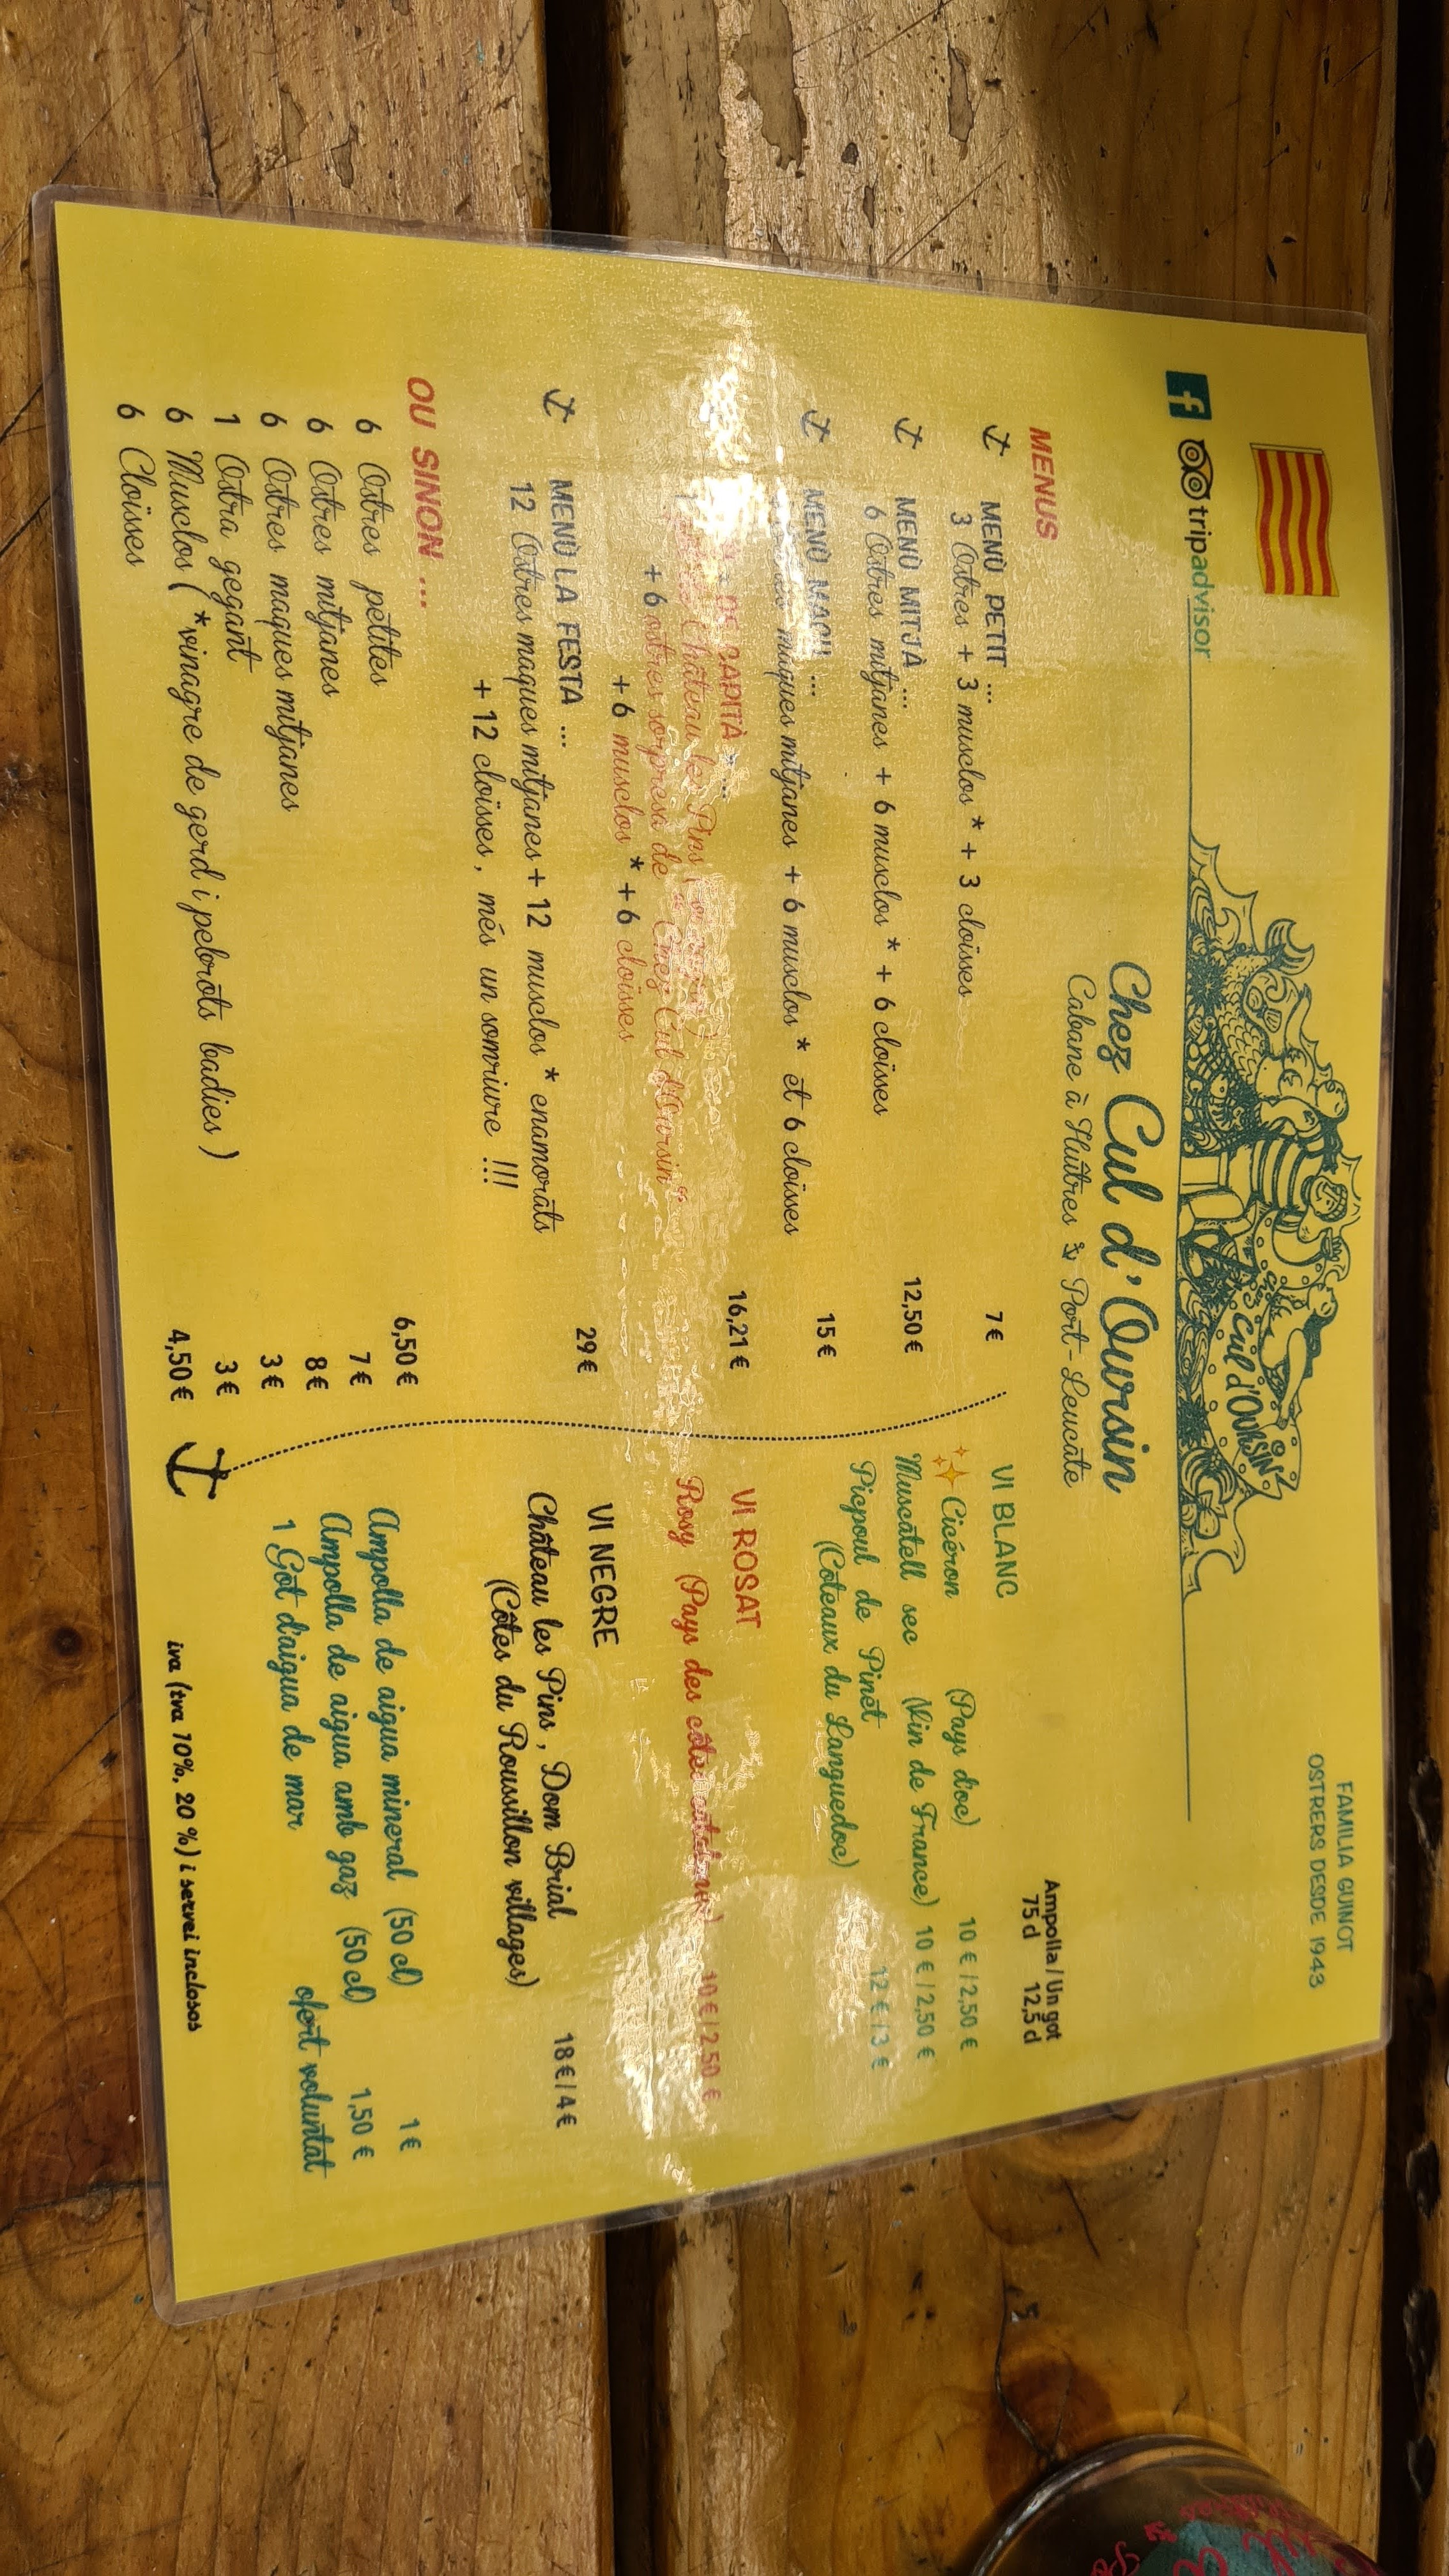 FAMILIA GUINOT
OSTRERS DESDE 1943
Cul d'OURSIN
tripadvisor
Chez Cul d'Oursin
Cabane à Huîtres Port-Leucate
MENUS
MENÙ PETIT ...
3 Ostres + 3 musclos * + 3 cloïsses
7 €
MENÙ MITJÀ ...
6 Ostres mitjanes + 6 musclos * + 6 cloïsses
12,50 €
MENÙ ...
maques mitjanes + 6 musclos * et 6 cloïsses
15 €
DE
Château les Pins
+ 6 ostres sorpresa de Chez Cul d'Oursin
+ 6 musclos * + 6 cloïsses
16,21 €
MENÙ LA FESTA ...
12 Ostres maques mitjanes + 12 musclos * enamorats
+ 12 cloïsses, més un somriure !!!
29 €
OU SINON ...
6 Ostres petites 6,50 €
6 Ostres mitjanes 7 €
6 Ostres maques mitjanes 8 €
1 Ostra gegant 3 €
6 Musclos (*vinagre de gerd i pebrots badies) 3 €
6 Cloïsses 4,50 €
Ampolla / Un got
75 cl 12,5 cl
VI BLANC
Cicéron (Pays d'oc) 10 € / 2,50 €
Muscatell sec (Vin de France) 10 € / 2,50 €
Picpoul de Pinet 12 € / 3 €
(Coteaux du Languedoc)
VI ROSAT
Rosy (Pays des côtes 10 € / 2,50 €
VI NEGRE
Château les Pins, Dom Brial 18 € / 4 €
(Côtes du Roussillon villages)
Ampolla de aigua mineral (50 cl) 1 €
Ampolla de aigua amb gaz (50 cl) 1,50 €
1 Got d'aigua de mar ofert voluntat
iva (tva 10%, 20 %) i servei inclosos